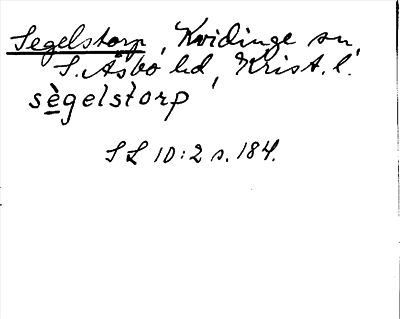 Segelstorp, Kvidinge sn,
S. Åsbo hd, Krist. l.
sè̲gelstòrp
SL 10:2 s. 184.